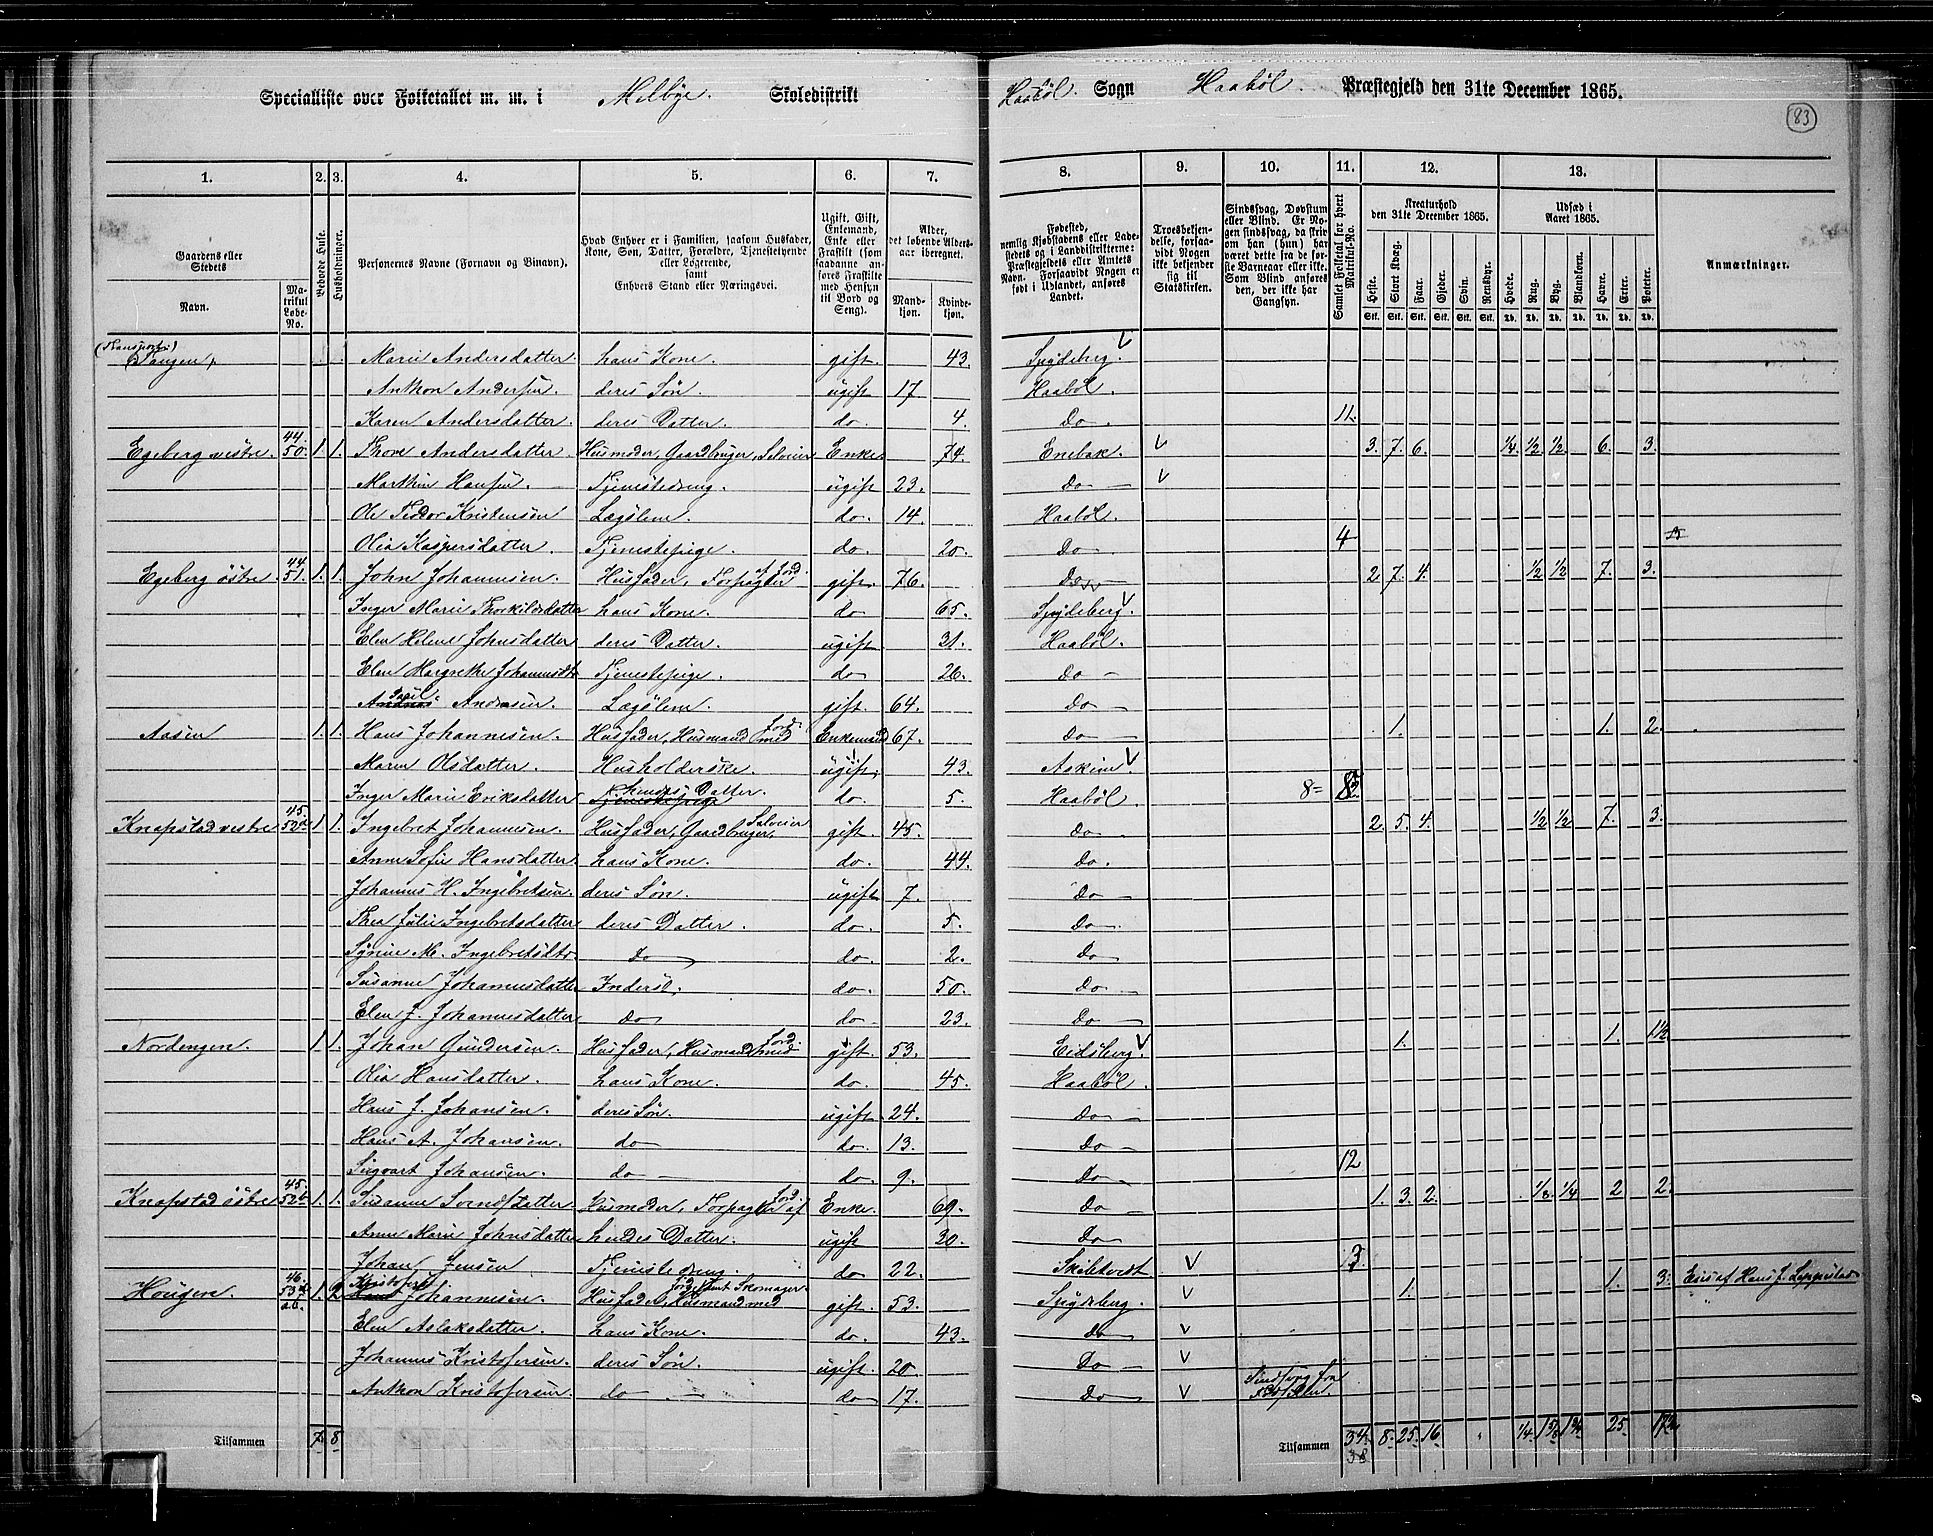 Specialliste over Folketallet m. m. i Melbye. Skoledistrikt Haabøl. Sogn Haabøl. Præstegjeld den 31te December 1865.
83
1. 2. 3. 4. 5. 6. 7. 8. 9. 10. 11. 12. 13.
Gaardens eller Stedets
Navn.
Matrikul Løbe-No.
Beboede Huse.
Husholdninger.
Personernes Navne (Fornavn og Binavn).
Hvad Enhver er i Familien, saasom Husfader, Kone, Søn, Datter, Forældre, Tjenestetyende eller Logerende, samt Enhvers Stand eller Næringsvei.
Ugift, Gift, Enkemand, Enke eller Fraskilt (som saadanne anføres Fraskilte med Hensyn til Bord og Seng).
Alder, det løbende Alders-aar iberegnet.
Mandkjøn. Kvindekjøn.
Fødested, nemlig Kjøbstadens eller Ladestedets og i Landdistrikterne: Præstegjeldets eller Amtets Navn. Forsaavidt Nogen er født i Udlandet, anføres Landet.
Troesbekjendelse, forsaavidt Nogen ikke bekjender sig til Statskirken.
Sindssvag, Døvstum eller Blind. Er Nogen sindssvag, da skrives om han (hun) har været dette fra de første Barneaar eller ikke. Som Blind anføres den, der ikke har Gangsyn.
Samlet Folketal for hvert Matrikul-No.
Kreaturhold den 31te December 1865.
Heste. Stort Kvæg. Faar. Gjeder. Svin. Rensdyr.
Udsæd i Aaret 1865.
Hvede. Rug. Byg. Blandkorn. Havre. Erter. Poteter.
Anmærkninger.
(Transport:)
Tangen, Marie Andersdatter hans Kone. gift 43. Spydeberg.
Anthon Andersen deres Søn. ugift 17 Haabøl.
Karen Andersdatter. deres Datter. do. 4. Do. 11.
Egeberg vestre. 44. 50. 1. 1. Thore Andersdatter. Husmoder, Gaardbruger, Selveier Enke 74. Enebak. 3. 7. 6. 1/4 1/2 1/2 6. 3.
Marthin Hansen. Tjenestedreng. ugift 23. Do
Ole Teodor Kristensen Lægslem. do. 14. Haabøl.
Olia Kaspersdatter. Tjenestepige. do. 20. Do 4
Egeberg østre. 44. 51. 1. 1. John Johannesen. Husfader, Forpagter af Jord. gift 76. Do 2 7. 4. 1/2 1/2 7. 3.
Inger Marie Thorkildsdatter hans Kone. do 65. Spydeberg.
Elen Helene Johnsdatter deres Datter. ugift 31. Haabøl.
Elen Margrethe Johannesdtr Tjenestepige. do 26. Do
Andersen. Lægslem. gift 64. Do
Aasen 1. 1. Hans Johannesen. Husfader, Husmand med Jord. Enkemand 67. Do 1. 1. 2.
Maren Olsdatter. Husholderske. ugift. 43. Askim.
Inger Marie Eriksdatter hendes Datter. do. 5. Haabøl. 8
Knapstad vestre 45. 52a 1. 1. Ingebret Johannesen. Husfader, Gaardbruger, Selveier gift. 45. do 2. 5. 4. 1/2 1/2 7. 3.
Anne Sofie Hansdatter hans Kone. do. 44. do.
Johannes H. Ingebretsen. deres Søn. ugift 7. Do
Thea Julie Ingebretsdatter deres Datter. do. 5. Do
Syrine M. Ingebretsdtr. do do. 2. Do
Susanne Johannesdatter Inderst. do. 50. Do
Elen J. Johannesdatter do do 23. Do
Nordengen. 1. 1. Johan Gundersen. Husfader, Husmand med Jord. gift. 53. Eidsberg. 1. 1. 1 1/2
Olia Hansdatter. hans Kone. do. 45. Haabøl.
Hans J. Johansen. deres Søn. ugift 24. Do
Hans A. Johansen. do do. 13. Do
Sigvart Johansen. do do. 9. Do 12
Knapstad østre 45. 52b 1. 1. Susanne Svendsdatter Husmoder, Forpagter af Jord. Enke. 69. Do 1. 3. 2. 1/8 1/4 2 2.
Anne Marie Johnsdatter hendes Datter. ugift 30. Do
Johan Jensen Tjenestedreng. do 22. Skibtvedt 3
Hougere. 46. 53a 1. 2 Kristofer Johannesen. Husfader, Husmand med Jord samt Skomager gift 53. Spydeberg. 1. 1. 3. Eies af Hans J. Leppestad
Elen Aslaksdatter. hans Kone. do. 43. do
Johannes Kristofersen. deres Søn. ugift. 20 Do
Anthon Kristofersen do do 17. Do Sindssvag fra
Tilsammen 7 8 Tilsammen 34. 8. 25. 16 1/4. 25.
38